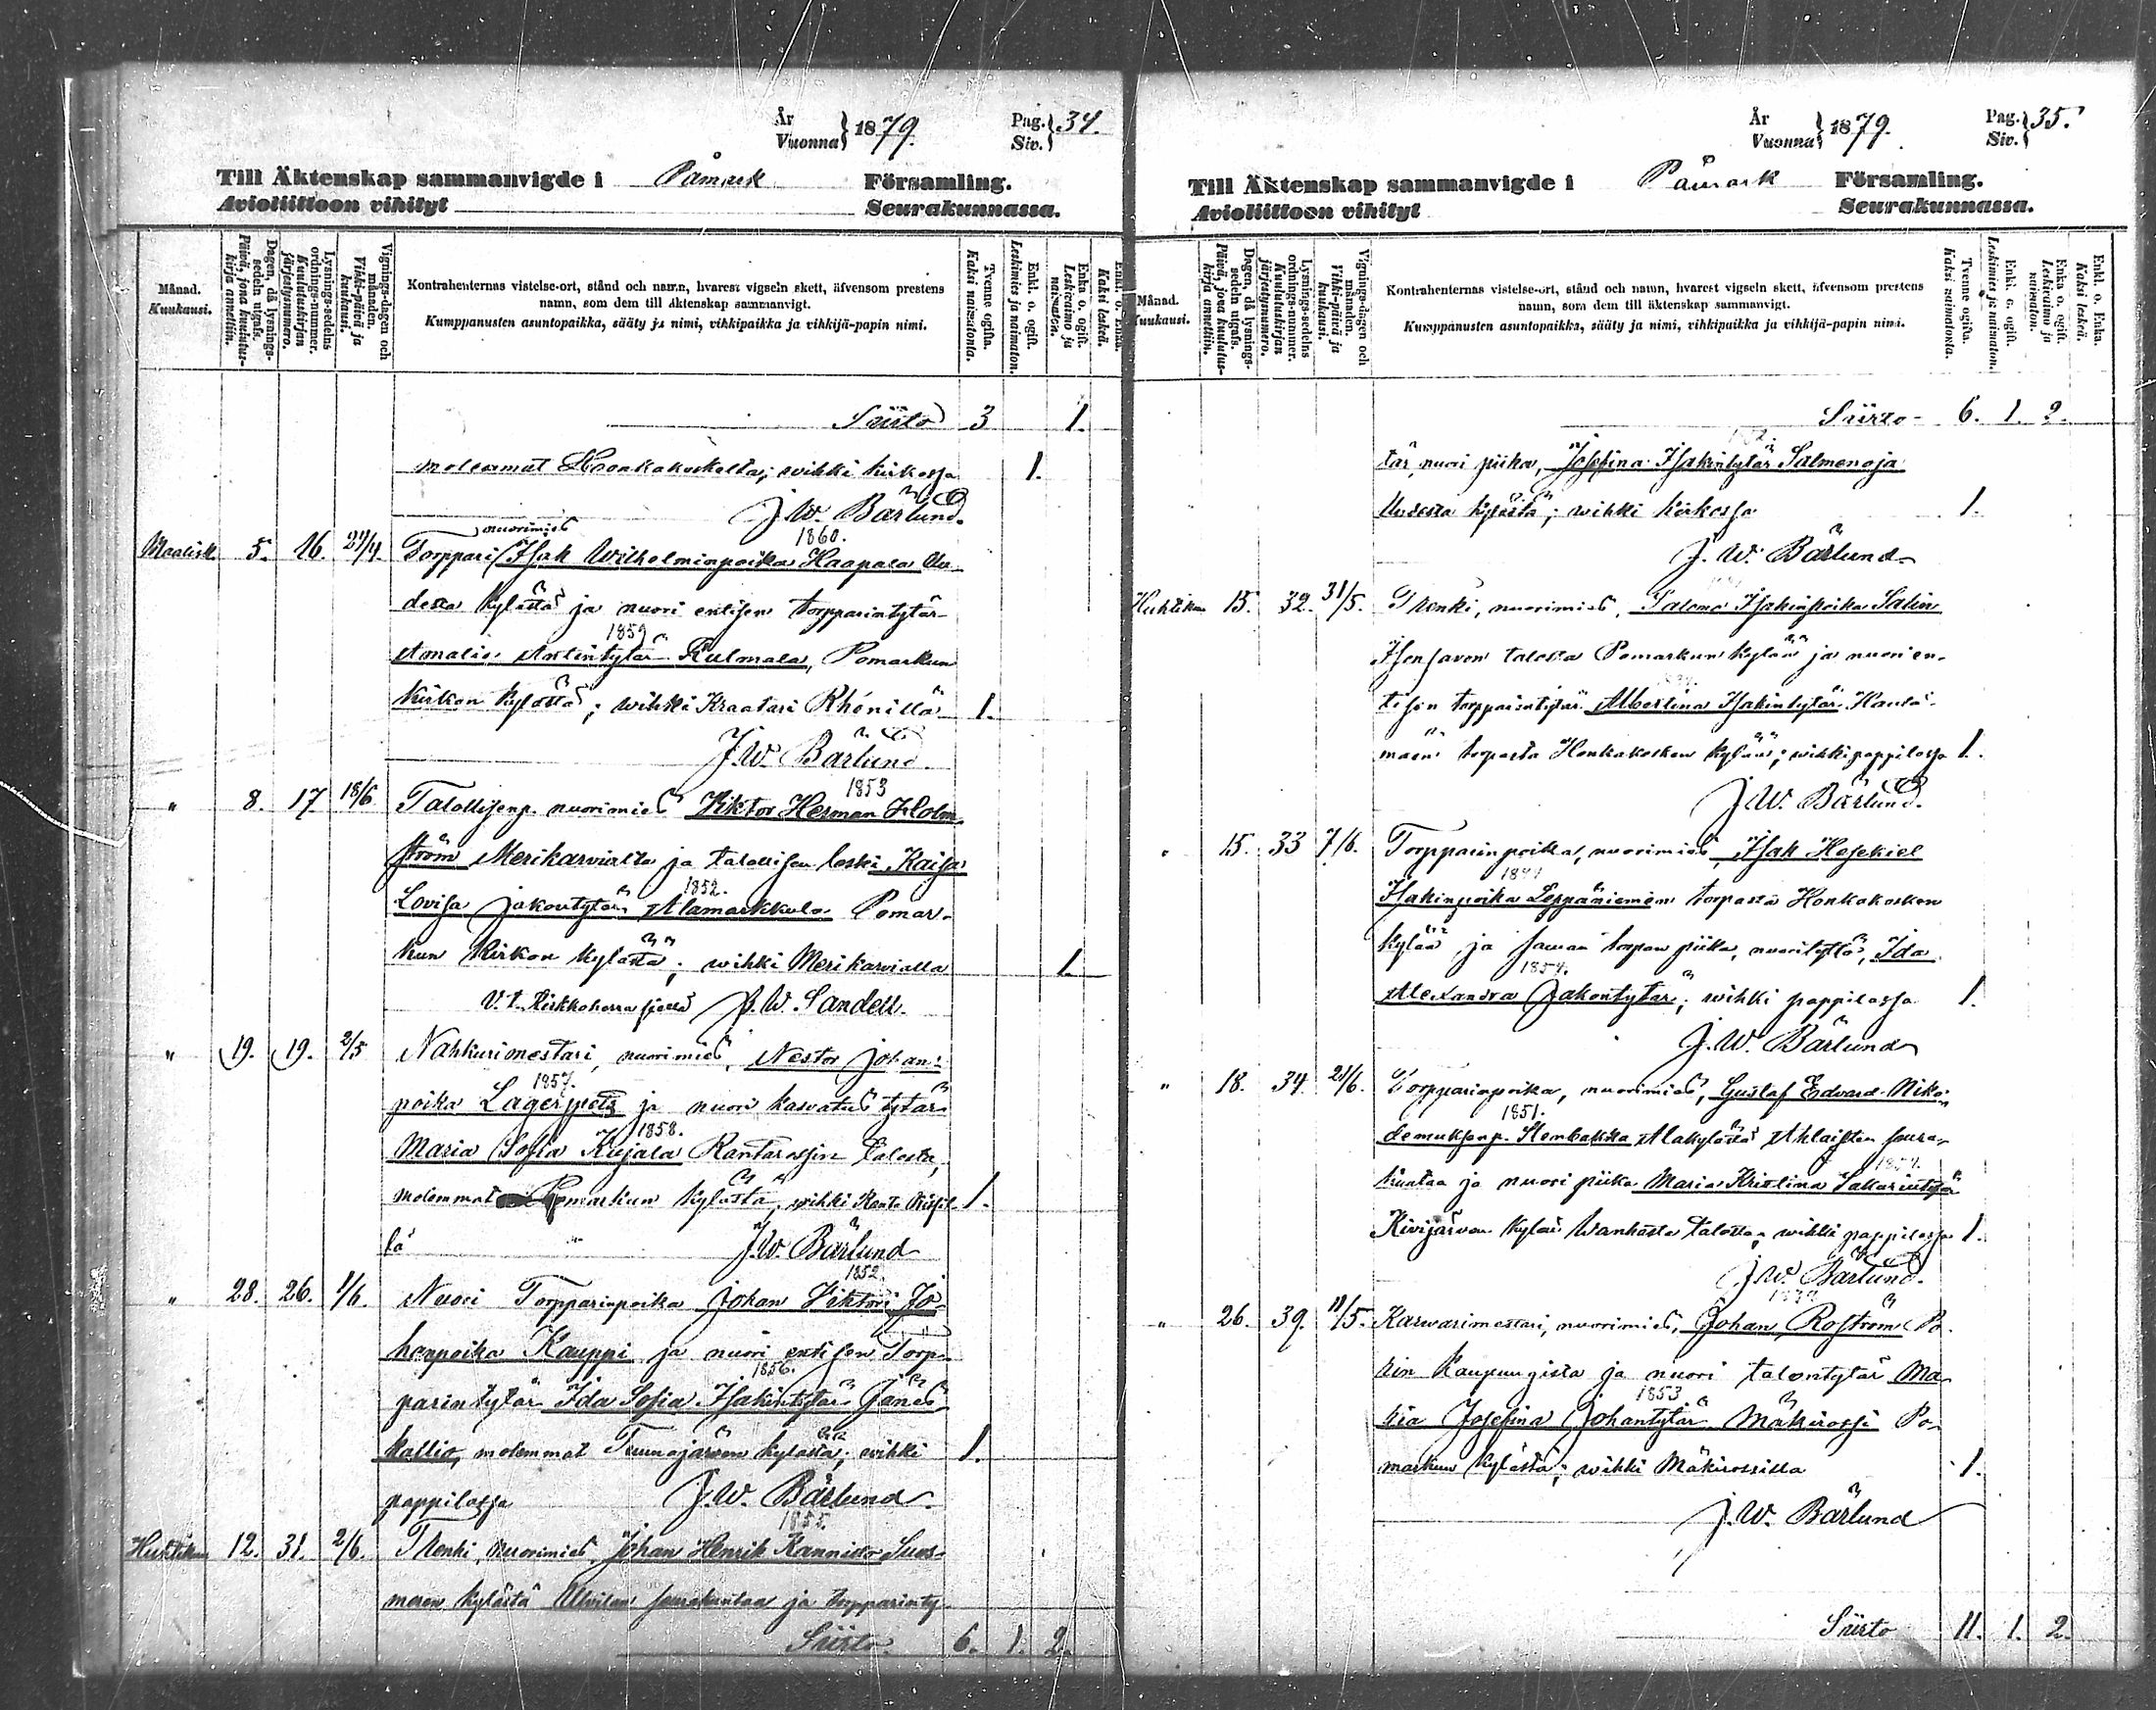 År
Vuonna } 1879.
Pag.
Siv. } 34.
Till Äktenskap sammanvigde i Påmark Församling.
Avioliittoon vihityt Seurakunnassa.
Månad.
Kuukausi.
Dagen, då lysnings-sedeln utgafs.
Päivä, jona kuulutus-kirja annettiin.
Lysnings-sedelns ordnings-nummer.
Kuulutuskirjan järjestysnumero.
Vignings-dagen och månaden.
Vihki-päivä ja kuukausi.
Kontrahenternas vistelse-ort, stånd och namn, hvarest vigseln skett, äfvensom prestens
namn, som dem till äktenskap sammanvigt.
Kumppanusten asuntopaikka, sääty ja nimi, vihkipaikka ja vihkijä-papin nimi.
Tvenne ogifta.
Kaksi naimatonta.
Enkl. o. ogift.
Leskimies ja naimaton.
Enka o. ogift.
Leskivaimo ja naimaton.
Enkl. o. Enka.
Kaksi leskeä.
Siirto 3 1.
molemmat Honkakoskelta; wihki kirkossa 1.
J. W. Bärlund.
nuorimies 1860.
Maalisk. 5. 16. Torppari Isak Wilhelminpoika Haapala Uu
desta kylästä ja nuori entisen torpparintytär
1859
Amalia Antintytär Kulmala, Pomarkun
kirkon kylästä; wihki Kraatari Rhénillä 1.
J. W. Bärlund.
1853
" 8. 17. 18/6 Talollisenp. nuorimies Viktor Herman Holm
ström Merikarvialta ja talollisen leski Kaisa
1852.
Lovisa Jakontytär Alamarkkula Pomar-
kun kirkon kylästä; wihki Merikarvialla 1.
V. t. Kirkkoherra siellä W. Sandell.
" 19. 19. 2/5 Nahkurimestari, nuorimies, Nestor Johan-
1857.
poika Lagerpets ja nuori kasvatus tytär
1858.
Maria Sofia Kujala Rantarossin talosta,
molemmat Pomarkun kylästä, wihki 1.
lä J. W. Bärlund
1852.
" 28. 26. 1/6. Nuori Torpparinpoika Johan Viktori Jo-
hanpoika Kauppi ja nuori entisen Torp-
1856.
parintytär Ida Sofia Isakintytär Jänes
kallio, molemmat Tuunajärven kylästä; wihki 1.
pappilassa J. W. Bärlund.
1855.
Huhtikuu 12. 31. 2/6. Trenki, nuorimies, Johan Henrik Kannisto Suos-
meren kylästä Ulvilan seurakuntaa ja torpparinty-
Siirto 6. 1. 2.
År
Vuonna } 1879.
Pag.
Siv. } 35.
Till Äktenskap sammanvigde i Påmark Församling.
Avioliittoon vihityt Seurakunnassa.
Månad.
Kuukausi.
Dagen, då lysnings-sedeln utgafs.
Päivä, jona kuulutus-kirja annettiin.
Lysnings-sedelns ordnings-nummer.
Kuulutuskirjan järjestysnumero.
Vignings-dagen och månaden.
Vihki-päivä ja kuukausi.
Kontrahenternas vistelse-ort, stånd och namn, hvarest vigseln skett, äfvensom prestens
namn, som dem till äktenskap sammanvigt.
Kumppanusten asuntopaikka, sääty ja nimi, vihkipaikka ja vihkijä-papin nimi.
Tvenne ogifta.
Kaksi naimatonta.
Enkl. o. ogift.
Leskimies ja naimaton.
Enka o. ogift.
Leskivaimo ja naimaton.
Enkl. o. Enka.
Kaksi leskeä.
Siirto 6. 1. 2.
tär, nuori piika, Josefina Isakintytär Salmenoja
Uudesta kylästä; wihki kirkossa 1.
J. W. Bärlund
Huhtikuu 15. 32. 31/5. Trenki, nuorimies, Salomo Isakinpoika Salin
Isonsavon talosta Pomarkun kylää ja nuori en-
tisen torpparintytär Albertina Isakintytär
mäen torpasta Honkakosken kylää; wihki pappilassa 1.
J. W. Bärlund.
" 15. 33 7/6. Torpparinpoika, nuorimies, Isak Hesekiel
Isakinpoika Leppäniemen torpasta Honkakosken
kylää, ja saman torpan piika, nuori tyttö, Ida
1854.
Alexandra Jakontytär; wihki pappilassa 1.
J. W. Bärlund
" 18. 34. 21/6. Torpparinpoika, nuorimies, Gustaf Edvard Niko-
1851.
demuksenp. Stenbakka Alakylästä Ahlaisten seura-
kuntaa ja nuori piika Maria Kristina Sakarintytär
Kivijärven kylää Wanhasta talosta, wihki pappilassa 1.
J. W. Bärlund.
" 26. 39. 11/5. Karwarimestari, nuorimies, Johan Roström Po-
rin kaupungista ja nuori talontytär Ma-
1853
ria Josefina Johantytär Mäkirossi Po-
markun kylästä; wihki Mäkirossilla 1.
J. W. Bärlund
Siirto 11. 1. 2.